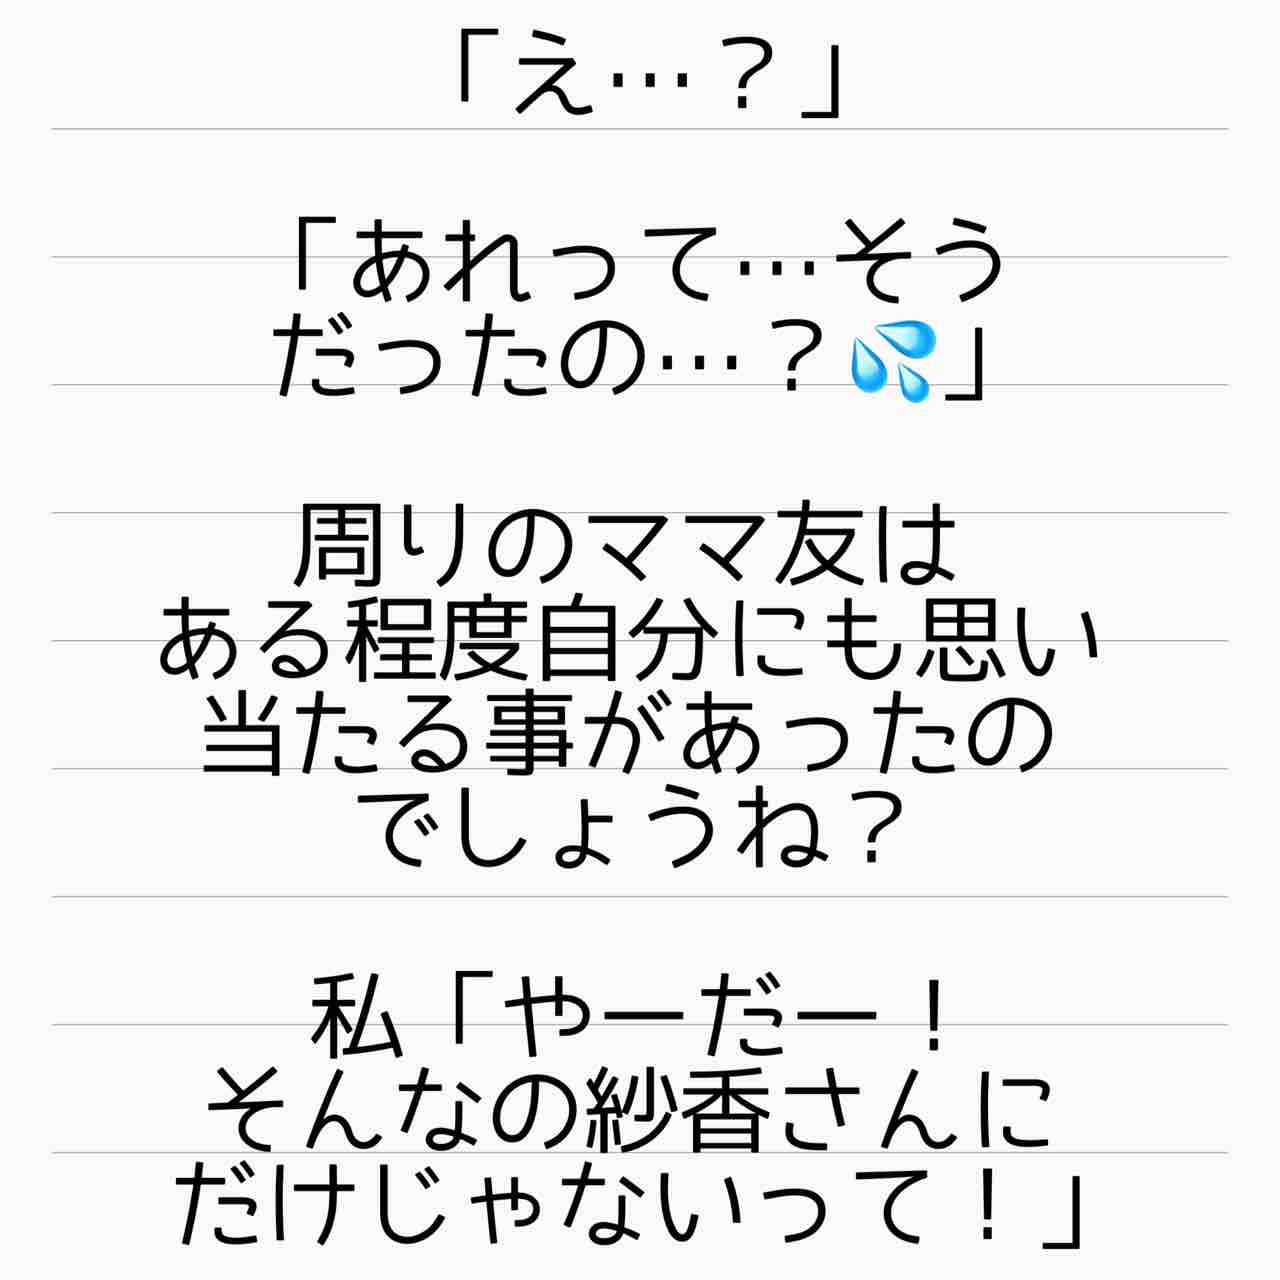 「え…？」
「あれって…そう
だったの…？💦」
周りのママ友は
ある程度自分にも思い
当たる事があったの
でしょうね？
私「やーだー！
そんなの紗香さんに
だけじゃないって！」